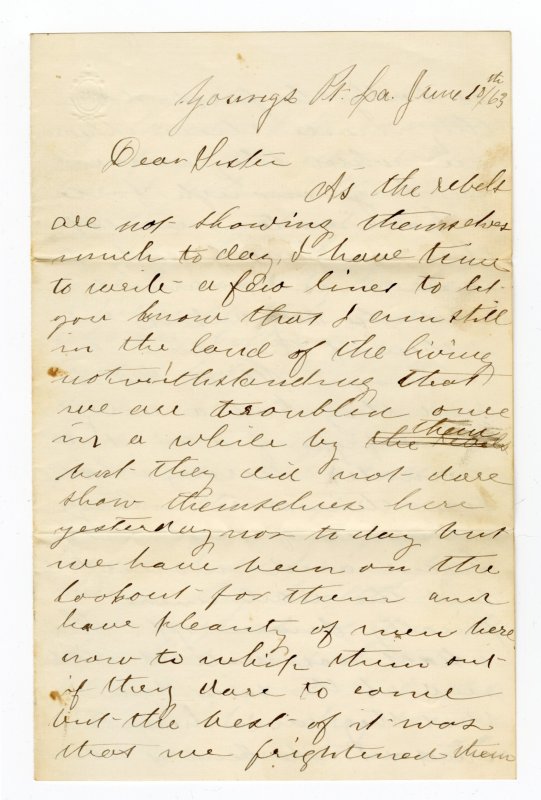 Youngs Pt. La. June 10th/63
Dear Sister
As the rebels
are not showing themselves
much to day, I have time
to write a few lines to let
you know that I am still
in the land of the living
notwithstanding that
we are troubled once
in a while by the rebels them
but they did not dare
show themselves here
yesterday nor to day but
we have been on the
lookout for them and
have pleanty of men here
now to whip them out
if they dare to come
but the best of it was
that we frightened them